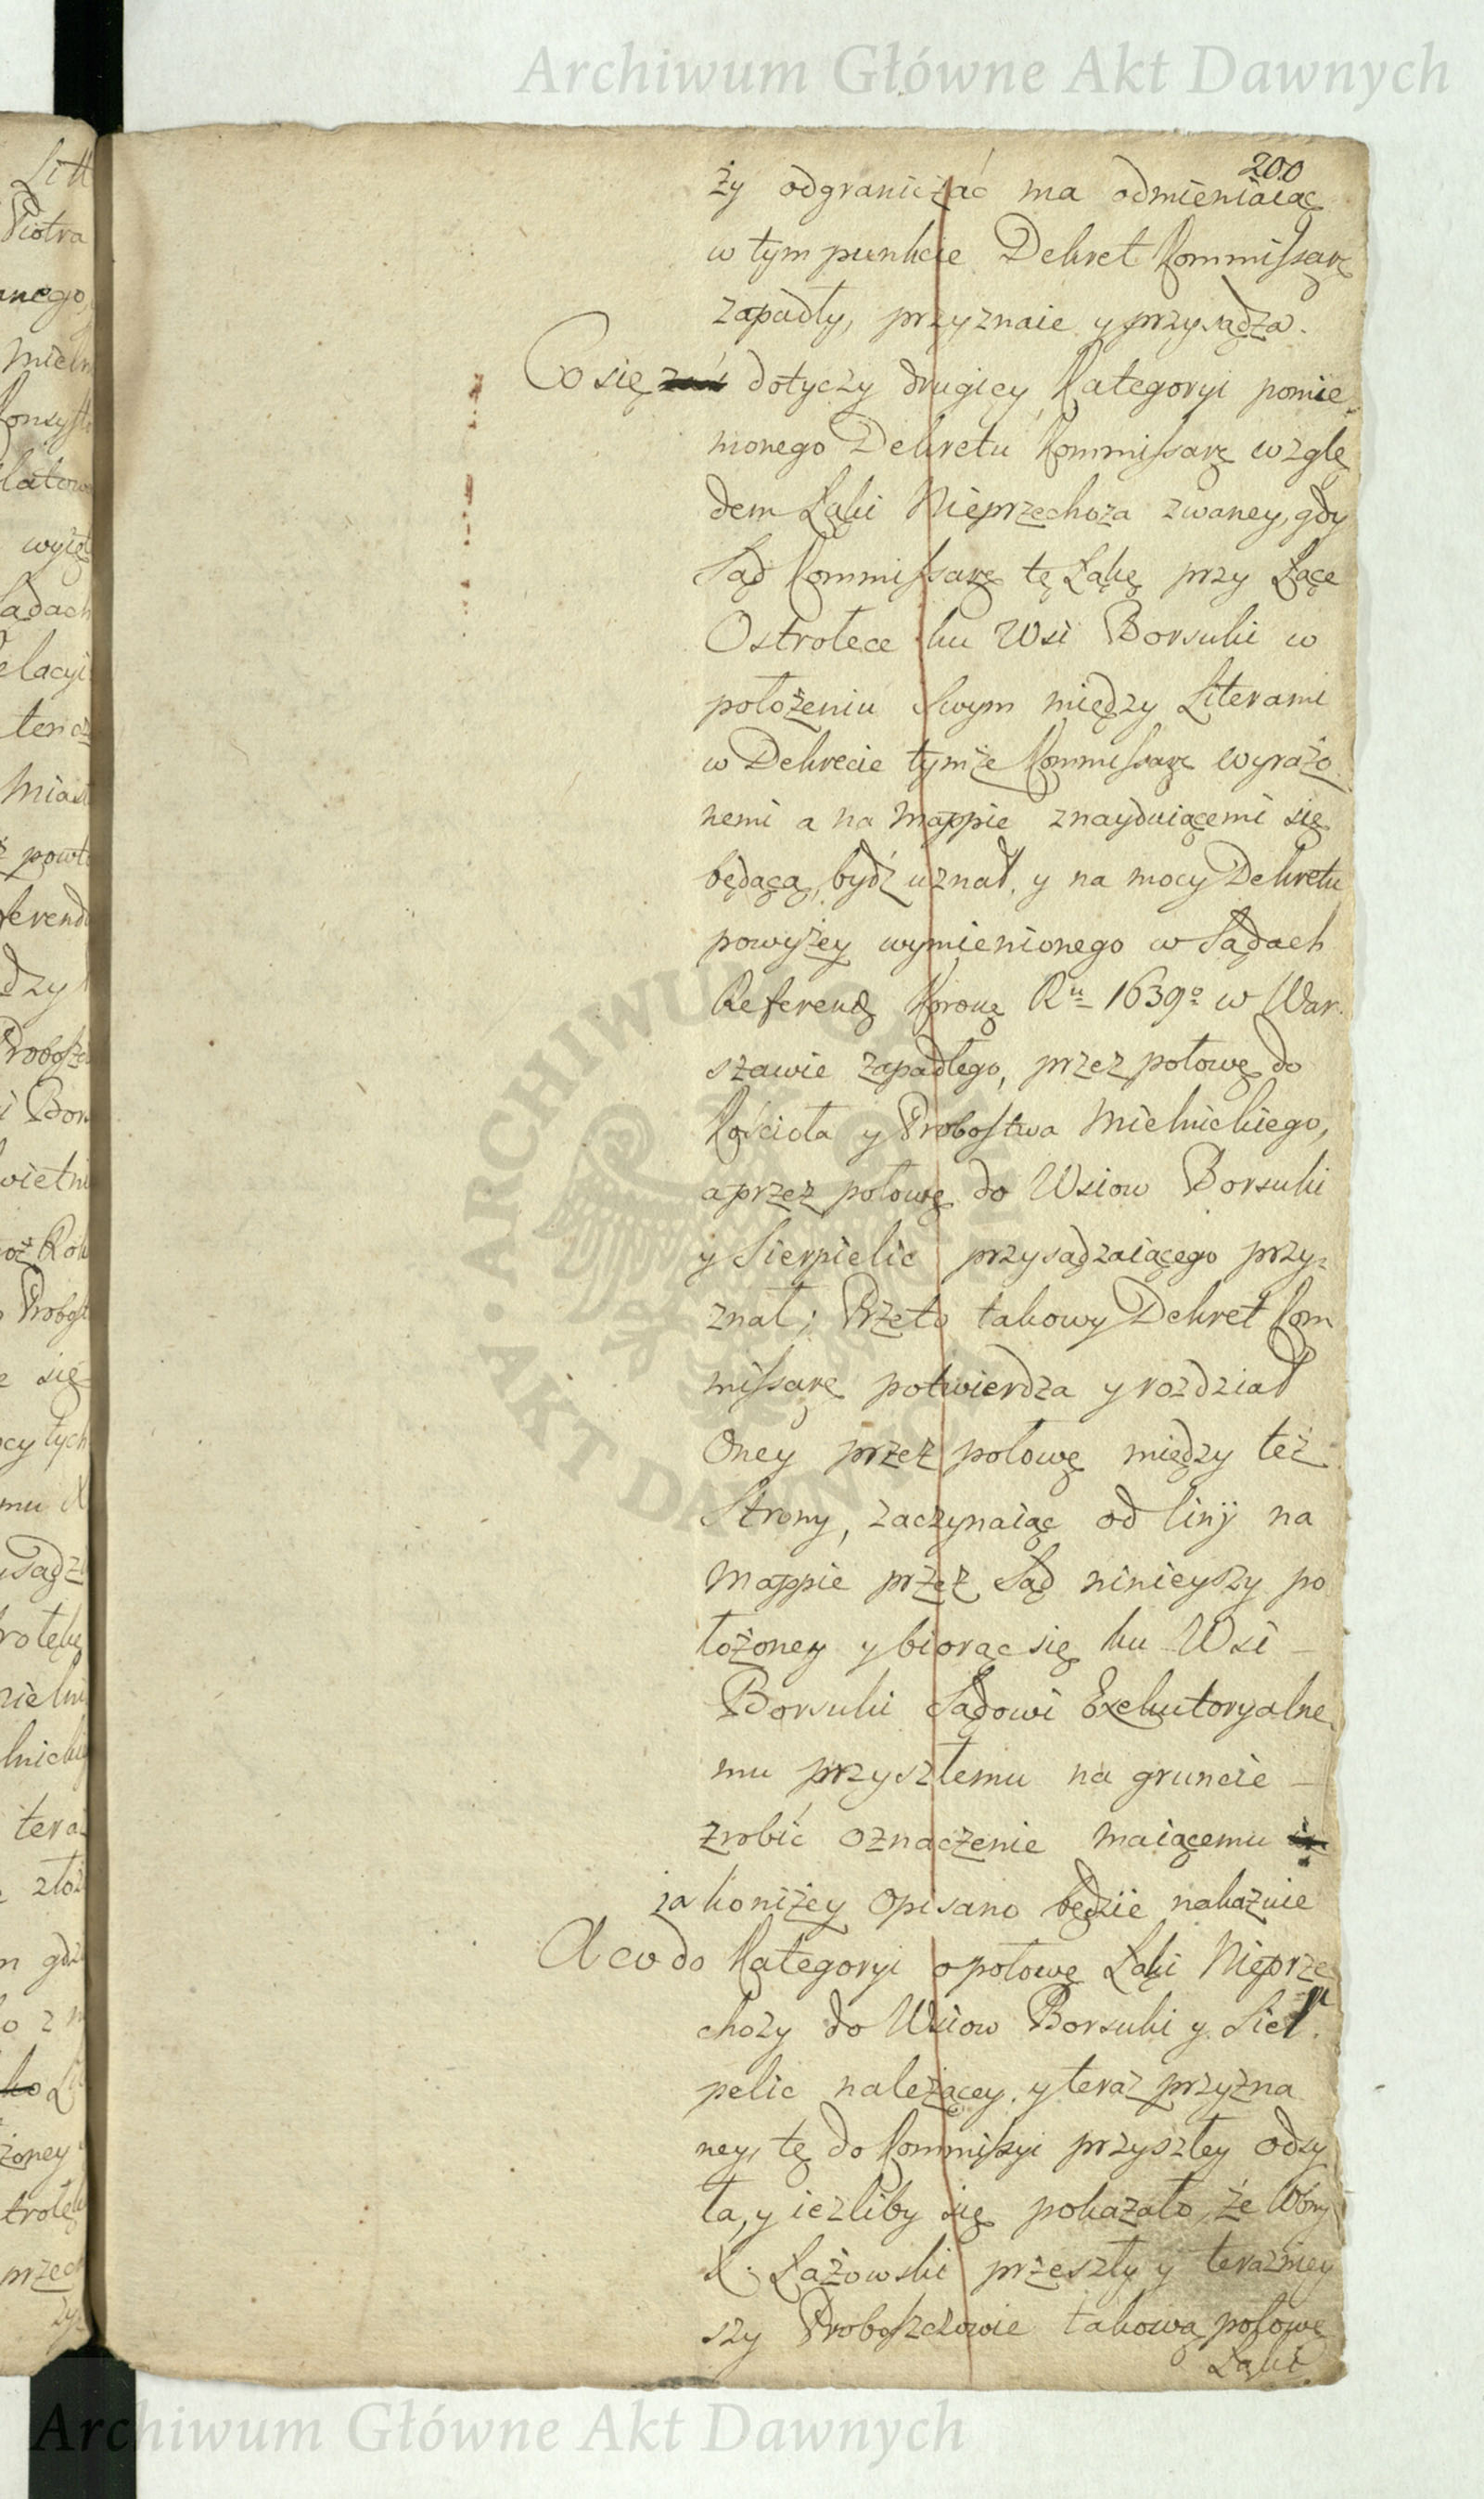 Archiwum Główne Akt Dawnych
200
ży odgraniczać ma odmieniaiąc
w tym punkcie Dekret Kommissarę
zapadły, przyznaie y przysądza.
Co się dotyczy drugiey Kategoryi pomie
nionego Dekretu Kommissarę wzglę
dem Łąki Nieprzechoża zwaney, gdy
Sąd Kommissarę tę Łąkę przy Łące
Ostrołece ku Wsi Borsuki w
położeniu swym między Literami
w Dekrecie tymże Kommissarę wyrażo
nemi a na Mappie znayduiącemi się
będącą, bydź uznał, y na mocy Dekretu
powyżey wymienionego w Sądach
Referend Koroną Ru 1639o w War
szawie zapadłego, przez połowę do
Kościoła y Probostwa Mielnickiego,
a przez połowę do Wsiow Borsuki
y Sierpielic przysądzaiącego przy=
znał; Przeto takowy Dekret Kom
missarę potwierdza y rozdział
Oney przez połowę między też
Strony, zaczynaiąc od linÿ na
Mappie przez Sąd ninieyszy po
łożoney y biorąc się ku Wsi
Borsuki Sądowi Exekutoryalne
mu przyszłemu na gruncie
zrobić oznaczenie maiącemu
jako niżey opisano będzie nakazuie
A co do Kategoryi o połowę Łąki Nieprze
choży do Wsiow Borsuki y Sier
pelic należącey, y teraz przyzna
ney, tę do Kommissyi przyszłey odsy
ła, y iezliby się pokazało, że Wbny
X. Łażowski przeszły y teraźniey
szy Proboszczowie takową połowę
Łąki
Archiwum Główne Akt Dawnych